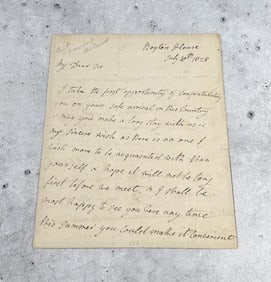 Boyton House
July 28th 1828
My Dear Sir
I take the first opportunity of congratulating
you on your safe arrival in this Country
may you make a long stay with us is
my sincere wish as there is no one I
wish more to be acquainted with than
yourself & hope it will not be long
first before we meet, & I shall be
most happy to see you here any time
this Summer you could make it convenient